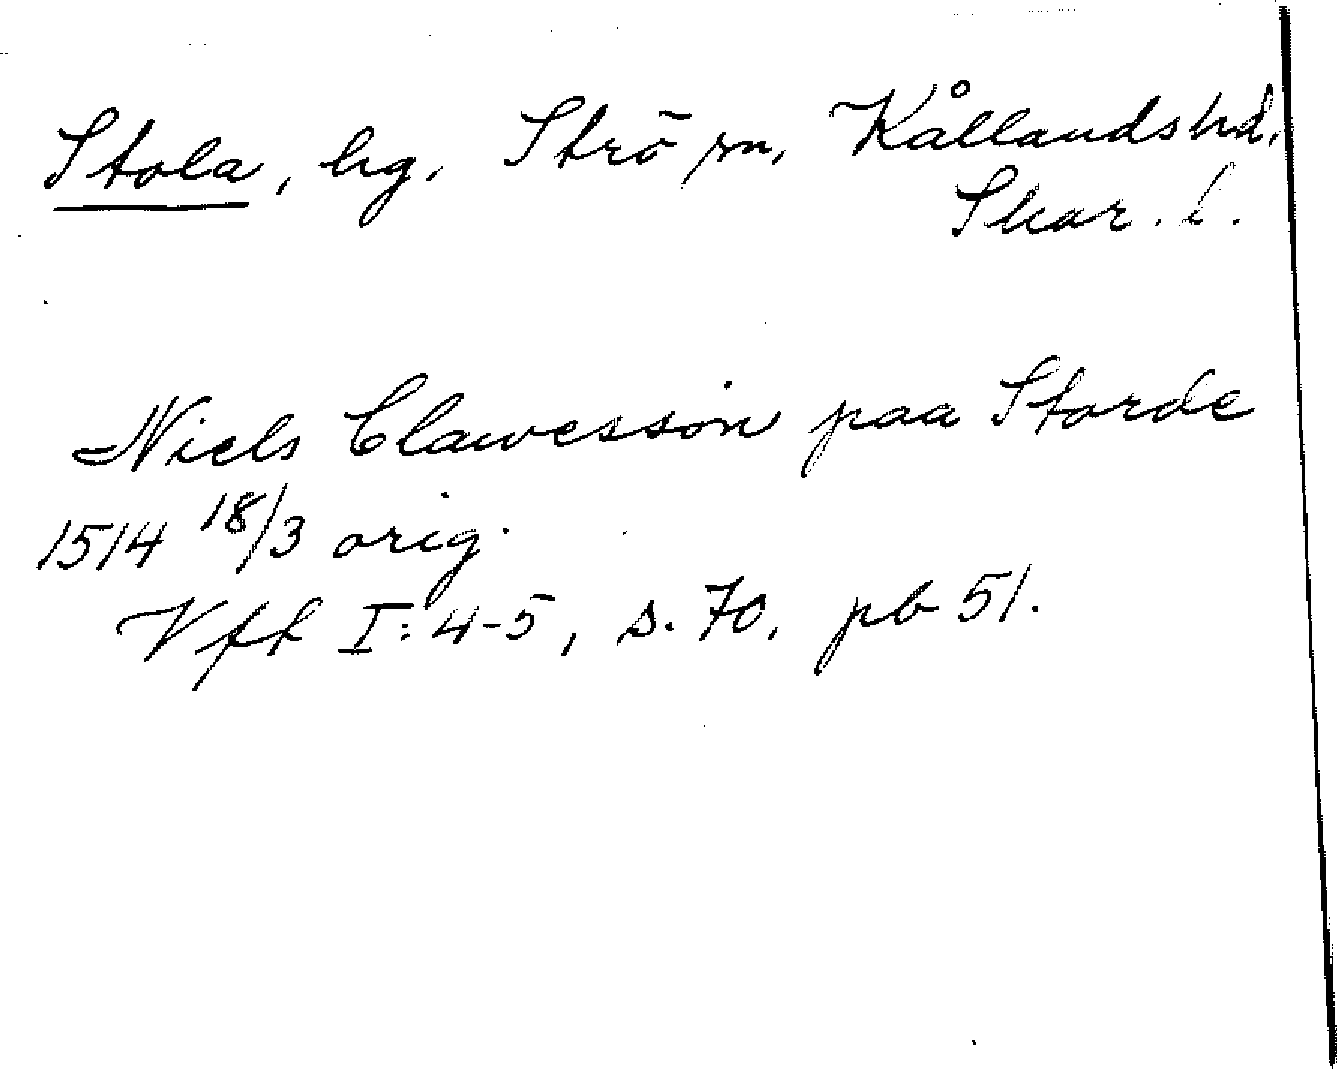 Stola, hg, Strö sn, Kållands hd.
Skar. l.
Niels Clawesson paa Storde
1514 18/3 orig.
Vff I:4-5, s. 70, pb 51.